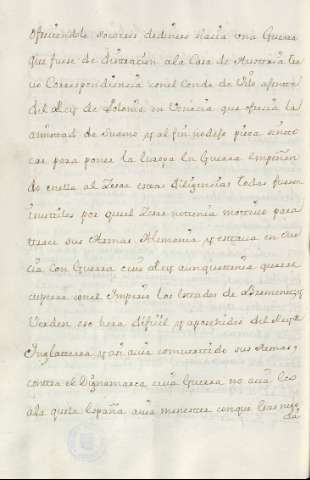 ofreciendole socorros de dineros hacia una Guerra
que fuese de distracion ala Casa de Austria tu
vo Correspondiencia con el Conde de
del Rey de Polonia en Venecia que ofrecia la
amistad de y al fin no dejo pieza sin to
car para poner la Europa en Guerra empeñan
do en ella al Zesar estas diligencias todas fueron
inutiles por que el Zesar no tenia motivos para
traer sus Armas Alemania y estava en Sue
cia con Guerra cuio Rey aunque tenia que re
cuperar en el Imperio los Estados de Bremen y
Verden eso hera dificil y aposehidos del Rey de
Inglaterra y asi avia combertido sus Armas,
contra el Dignamarca cuia Guerra no avia
ala que la España avia menester conque las nego